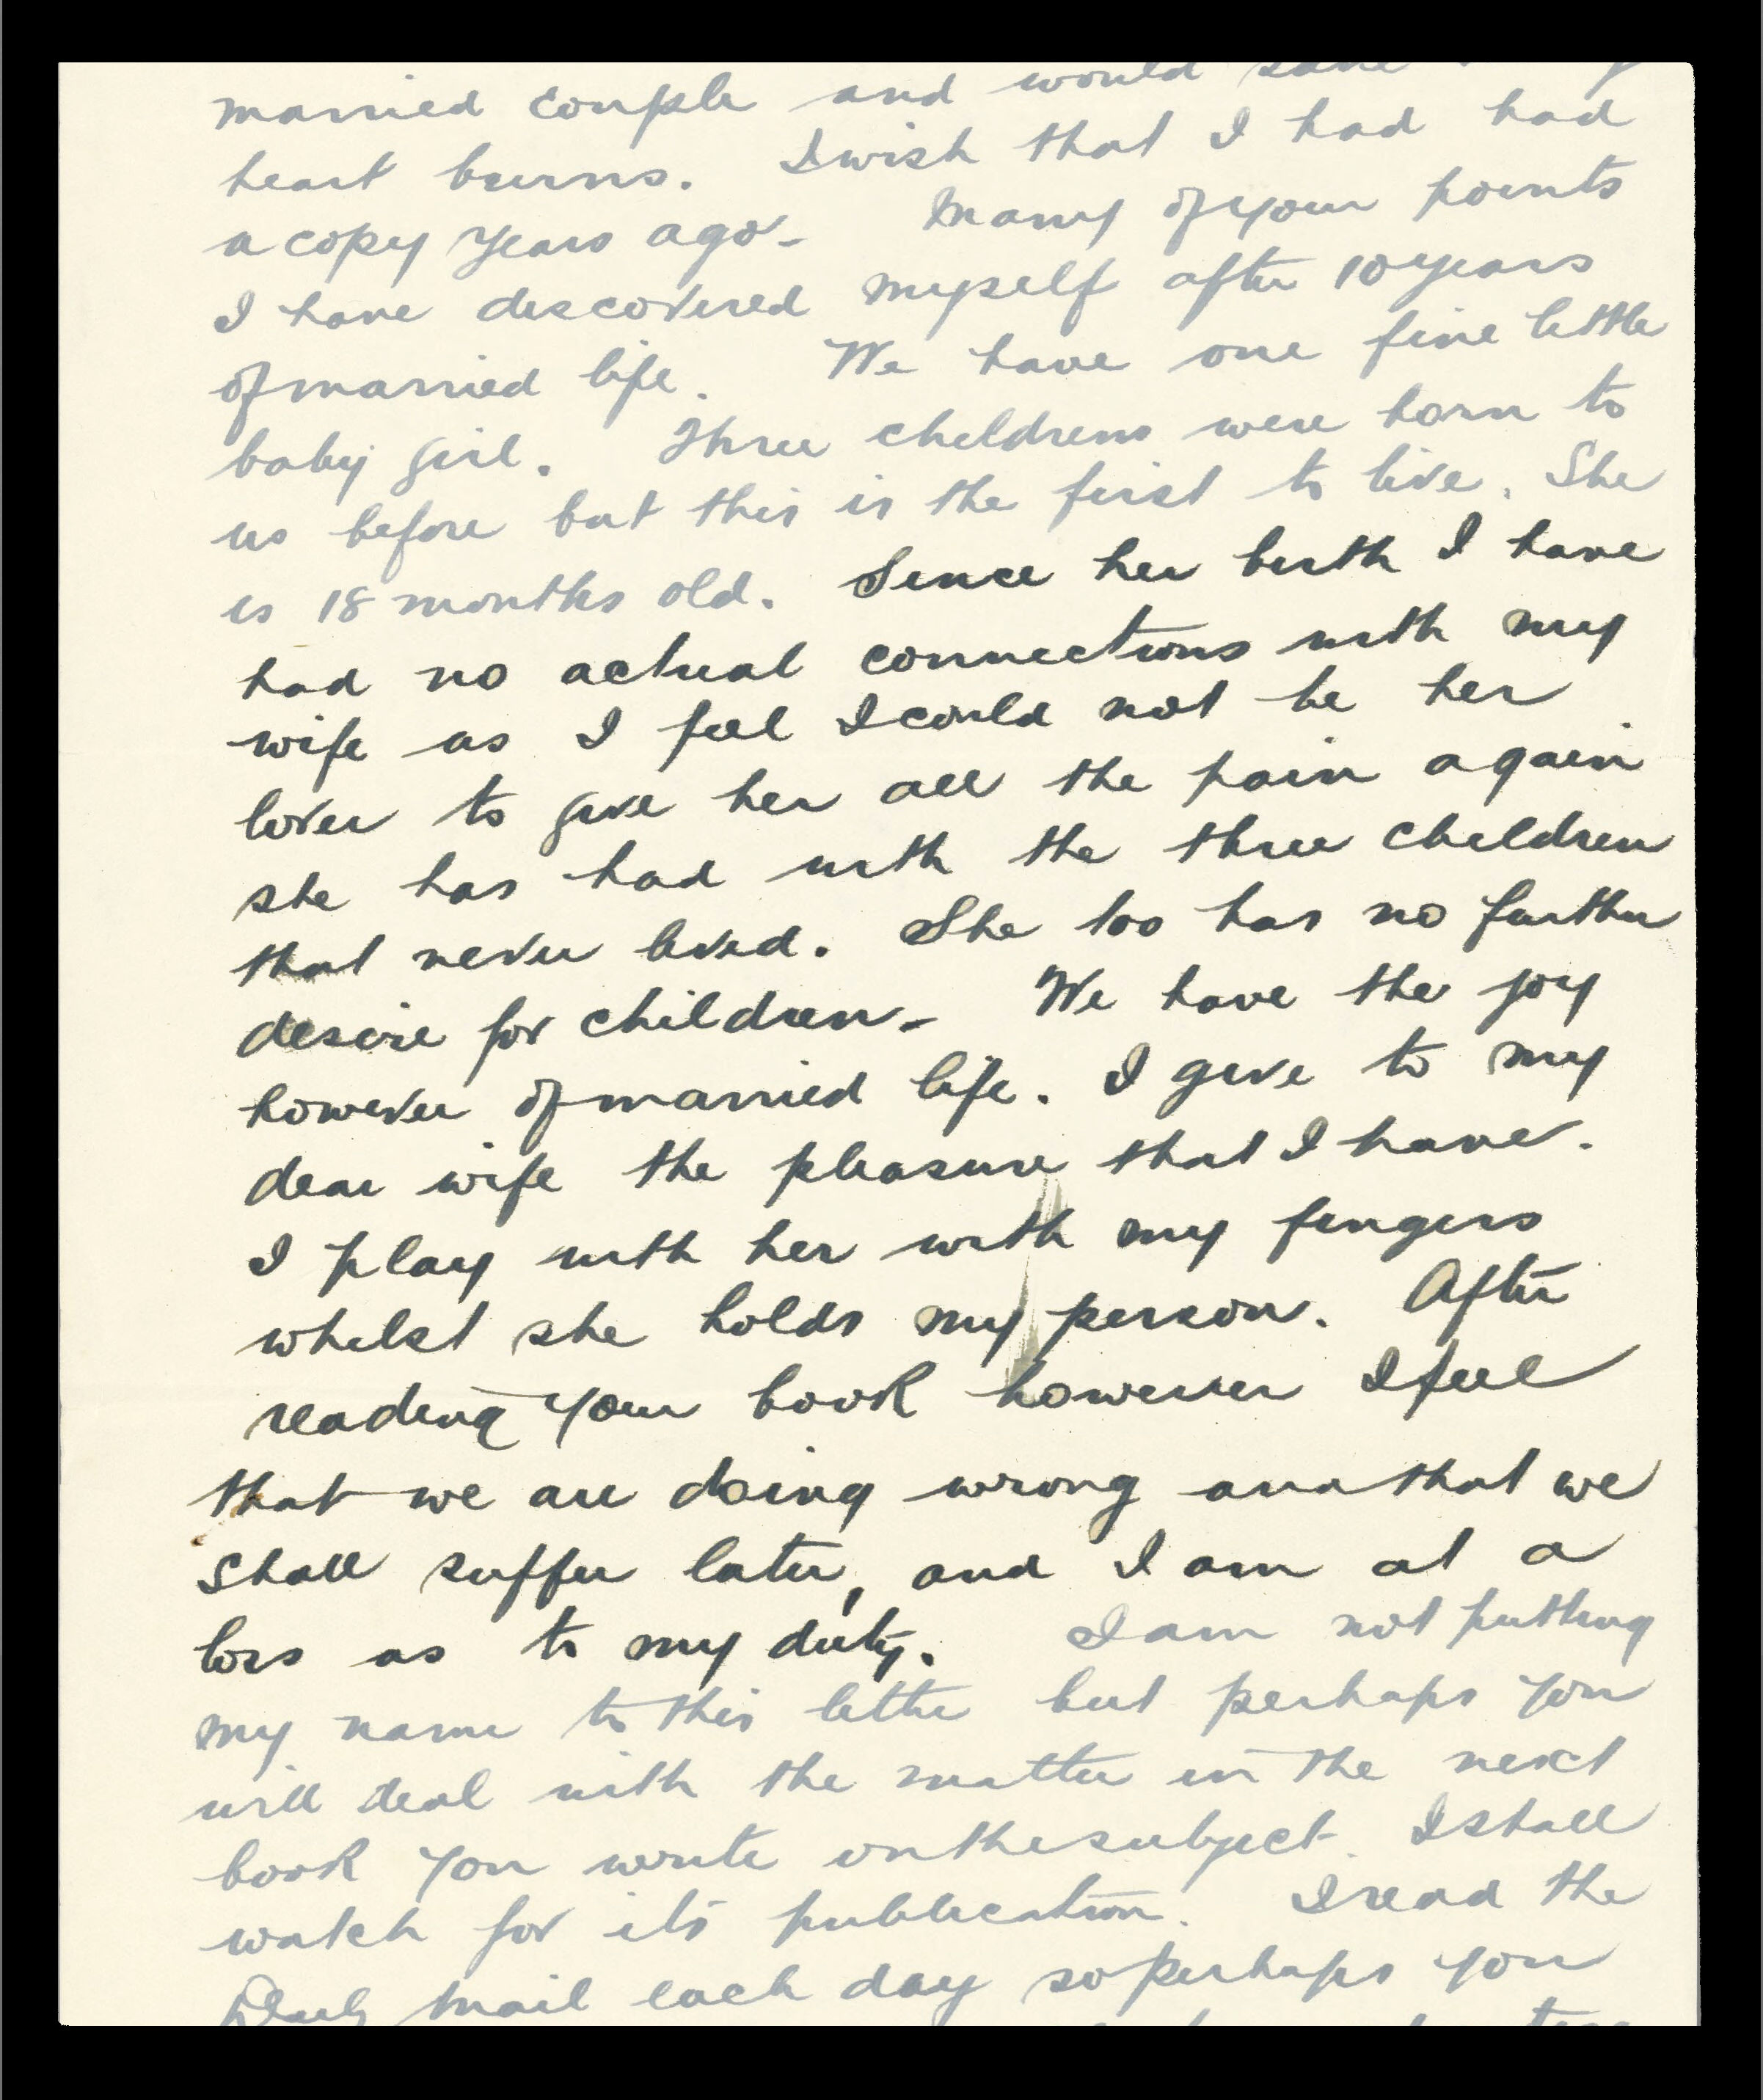 married couple and would save
heart burns. I wish that I had had
a copy years ago - Many of your points
I have descovered myself after 10 years
of married life. We have one fine little
baby girl. Three childrens were born to
us before but this is the first to live. She
is 18 months old. Since her birth I have
had no actual connections with my
wife as I feel I could not be her
lover to give her all the pain again
she has had with the three children
that never lived. She too has no further
desire for children - We have the joy
however of married life. I give to my
dear wife the pleasure that I have.
I play with her with my fingers
whilst she holds my person. After
reading your book however I feel
that we are doing wrong and that we
shall suffer later, and I am at a
loss as to my duty. I am not putting
my name to this letter but perhaps you
will deal with the matter in the next
book you write on the subject. I shall
watch for its publication. I read the
Daily Mail each day so perhaps you